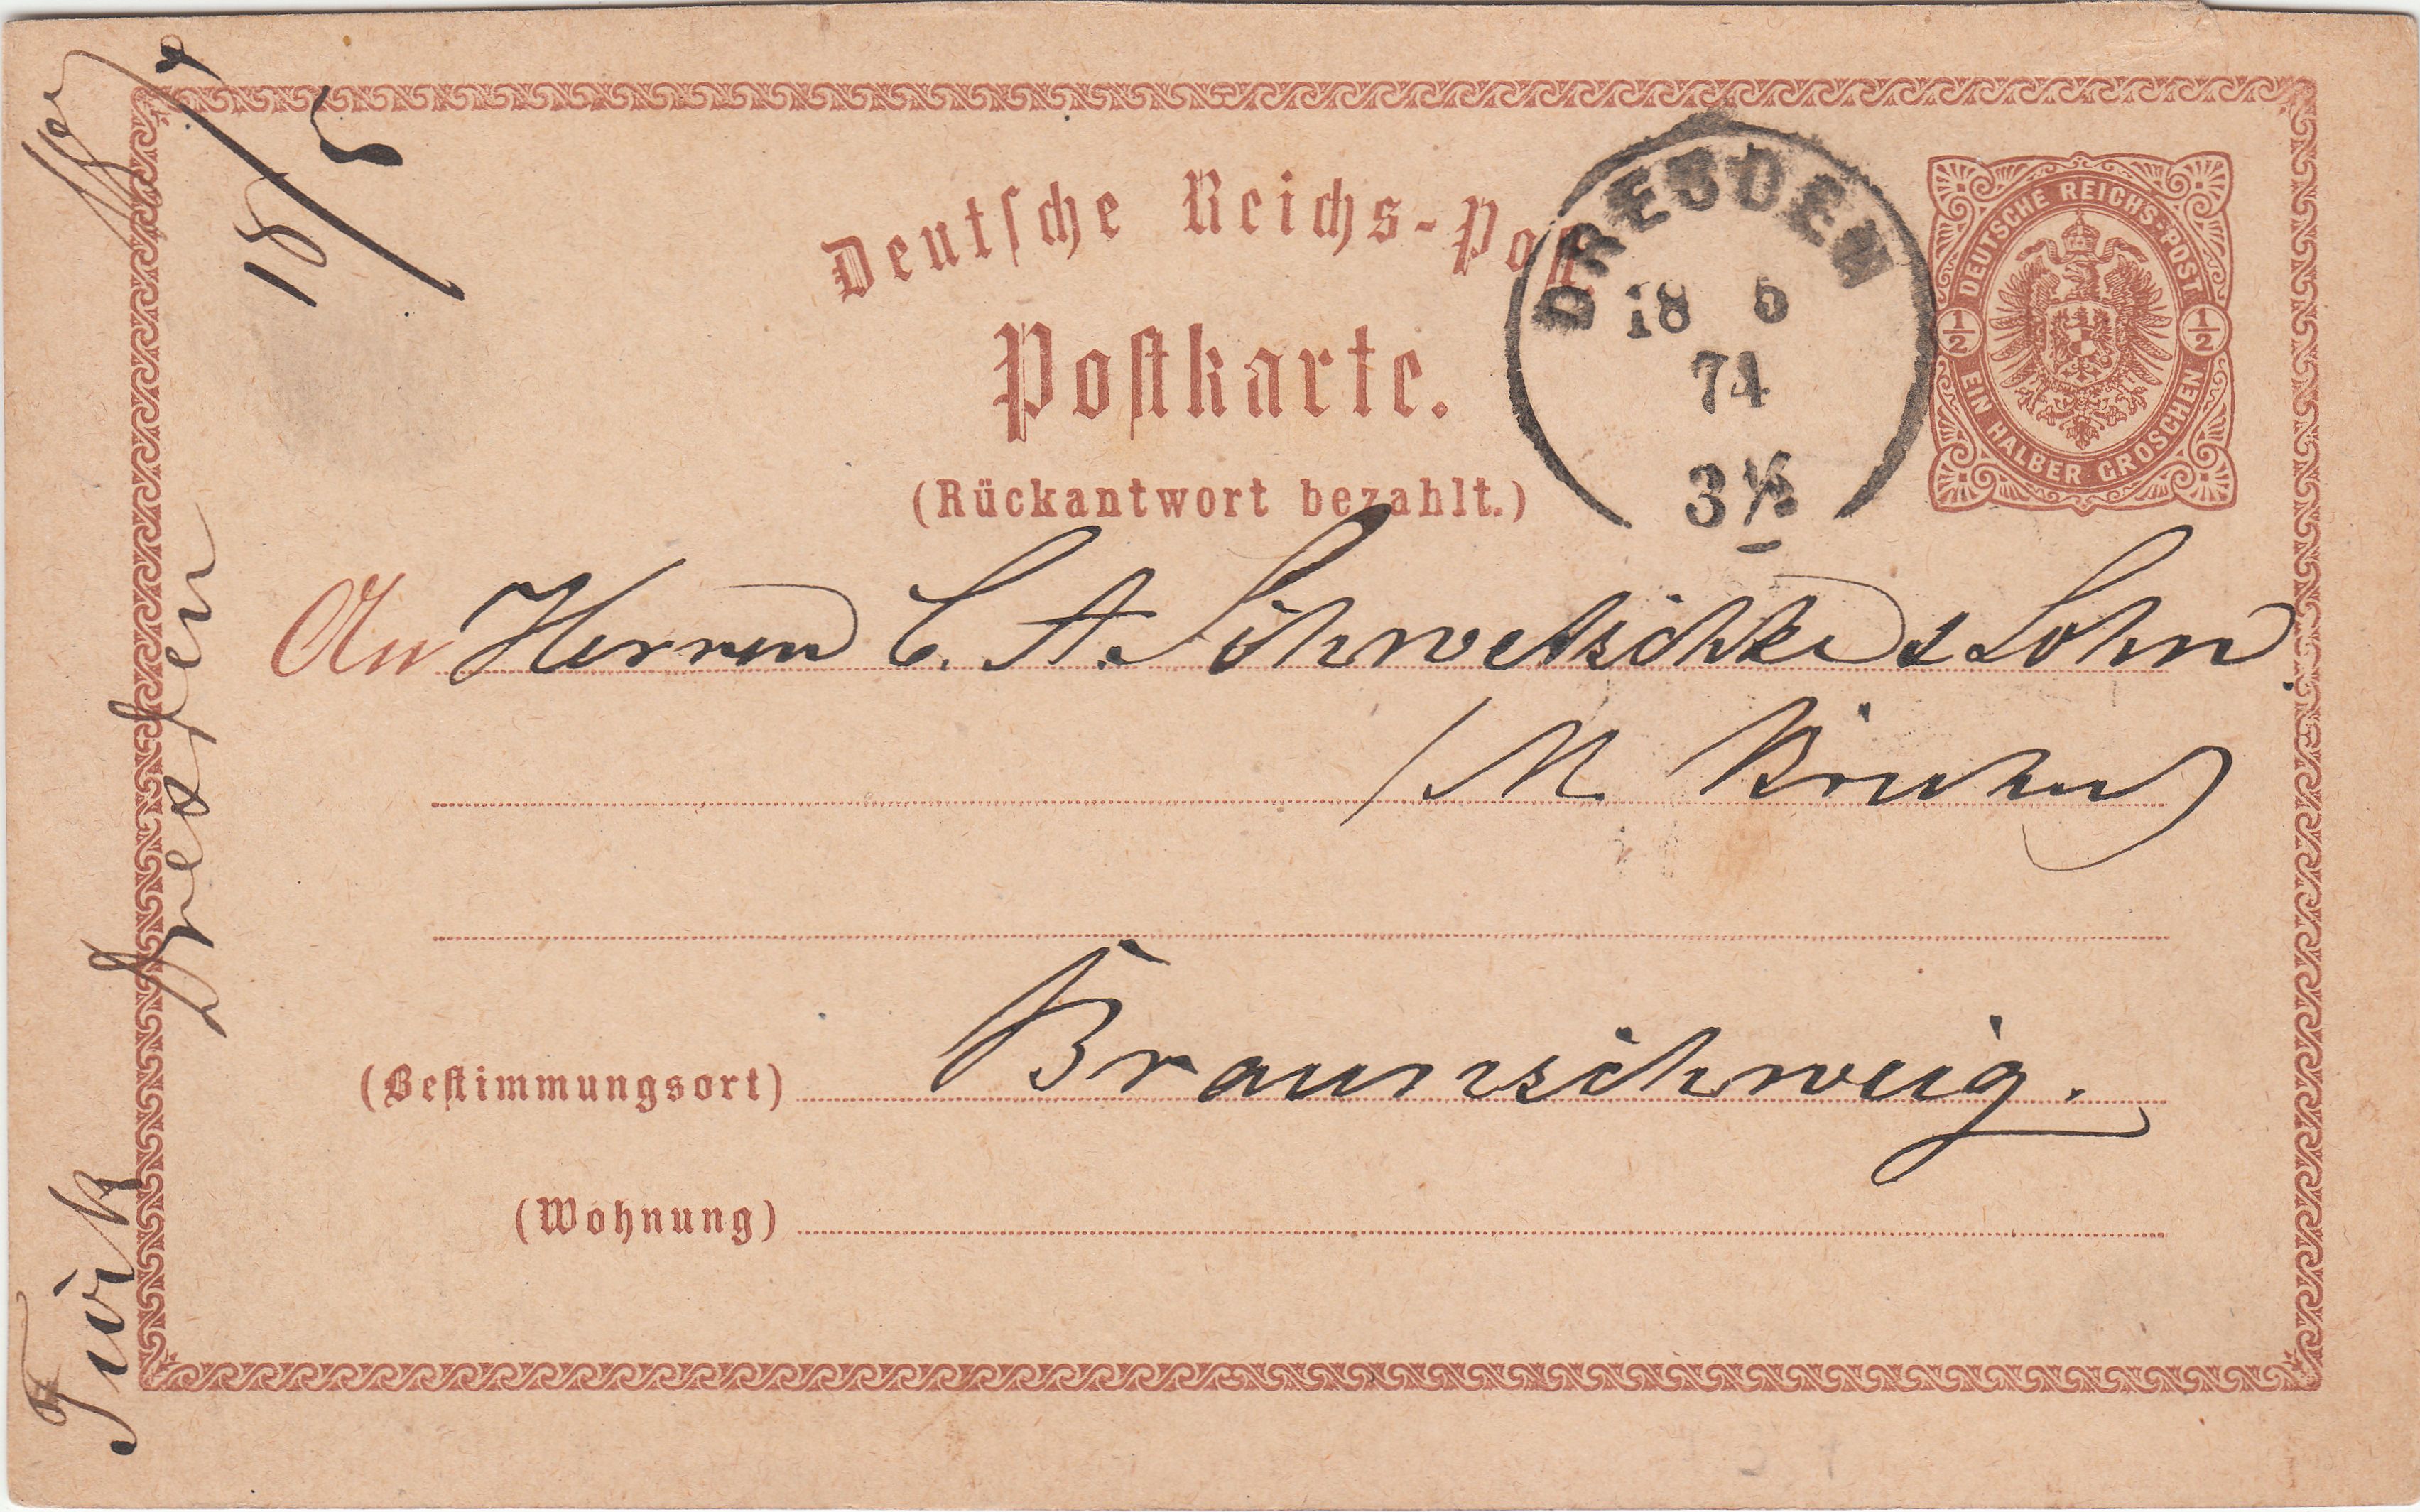 Deutsche Reichs-Post
Postkarte.
(Rückantwort bezahlt.)
DRESDEN
18 5
74
3½
DEUTSCHE REICHS-POST
½ ½
EIN HALBER GROSCHEN
An Herren C. A. Schwetschke & Sohn
/M. Bruhn/
(Bestimmungsort) Braunschweig.
(Wohnung)
Türk
Dresden
18/5